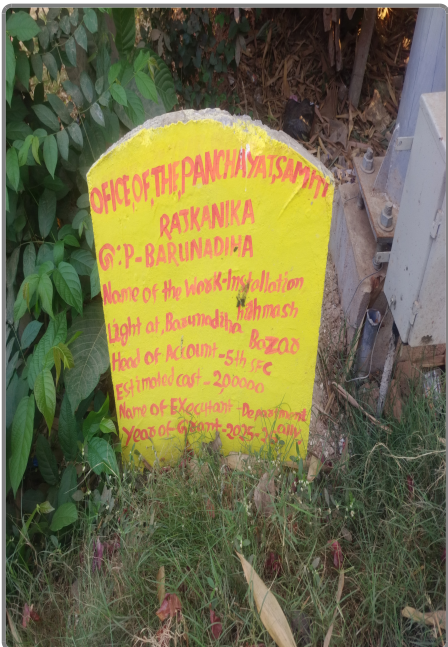 OFICE OF, THE, PANCHAYAT, SAMITI
RAJKANIKA
G:P-BARUNADIHA
Name of the Work-Installation
Light at, Barunadiha highmash
Bazar
Head of Account-5th SFC
Estimated cost-2,00000
Name of Executant-Departmentally
Year of Grant-2025-26